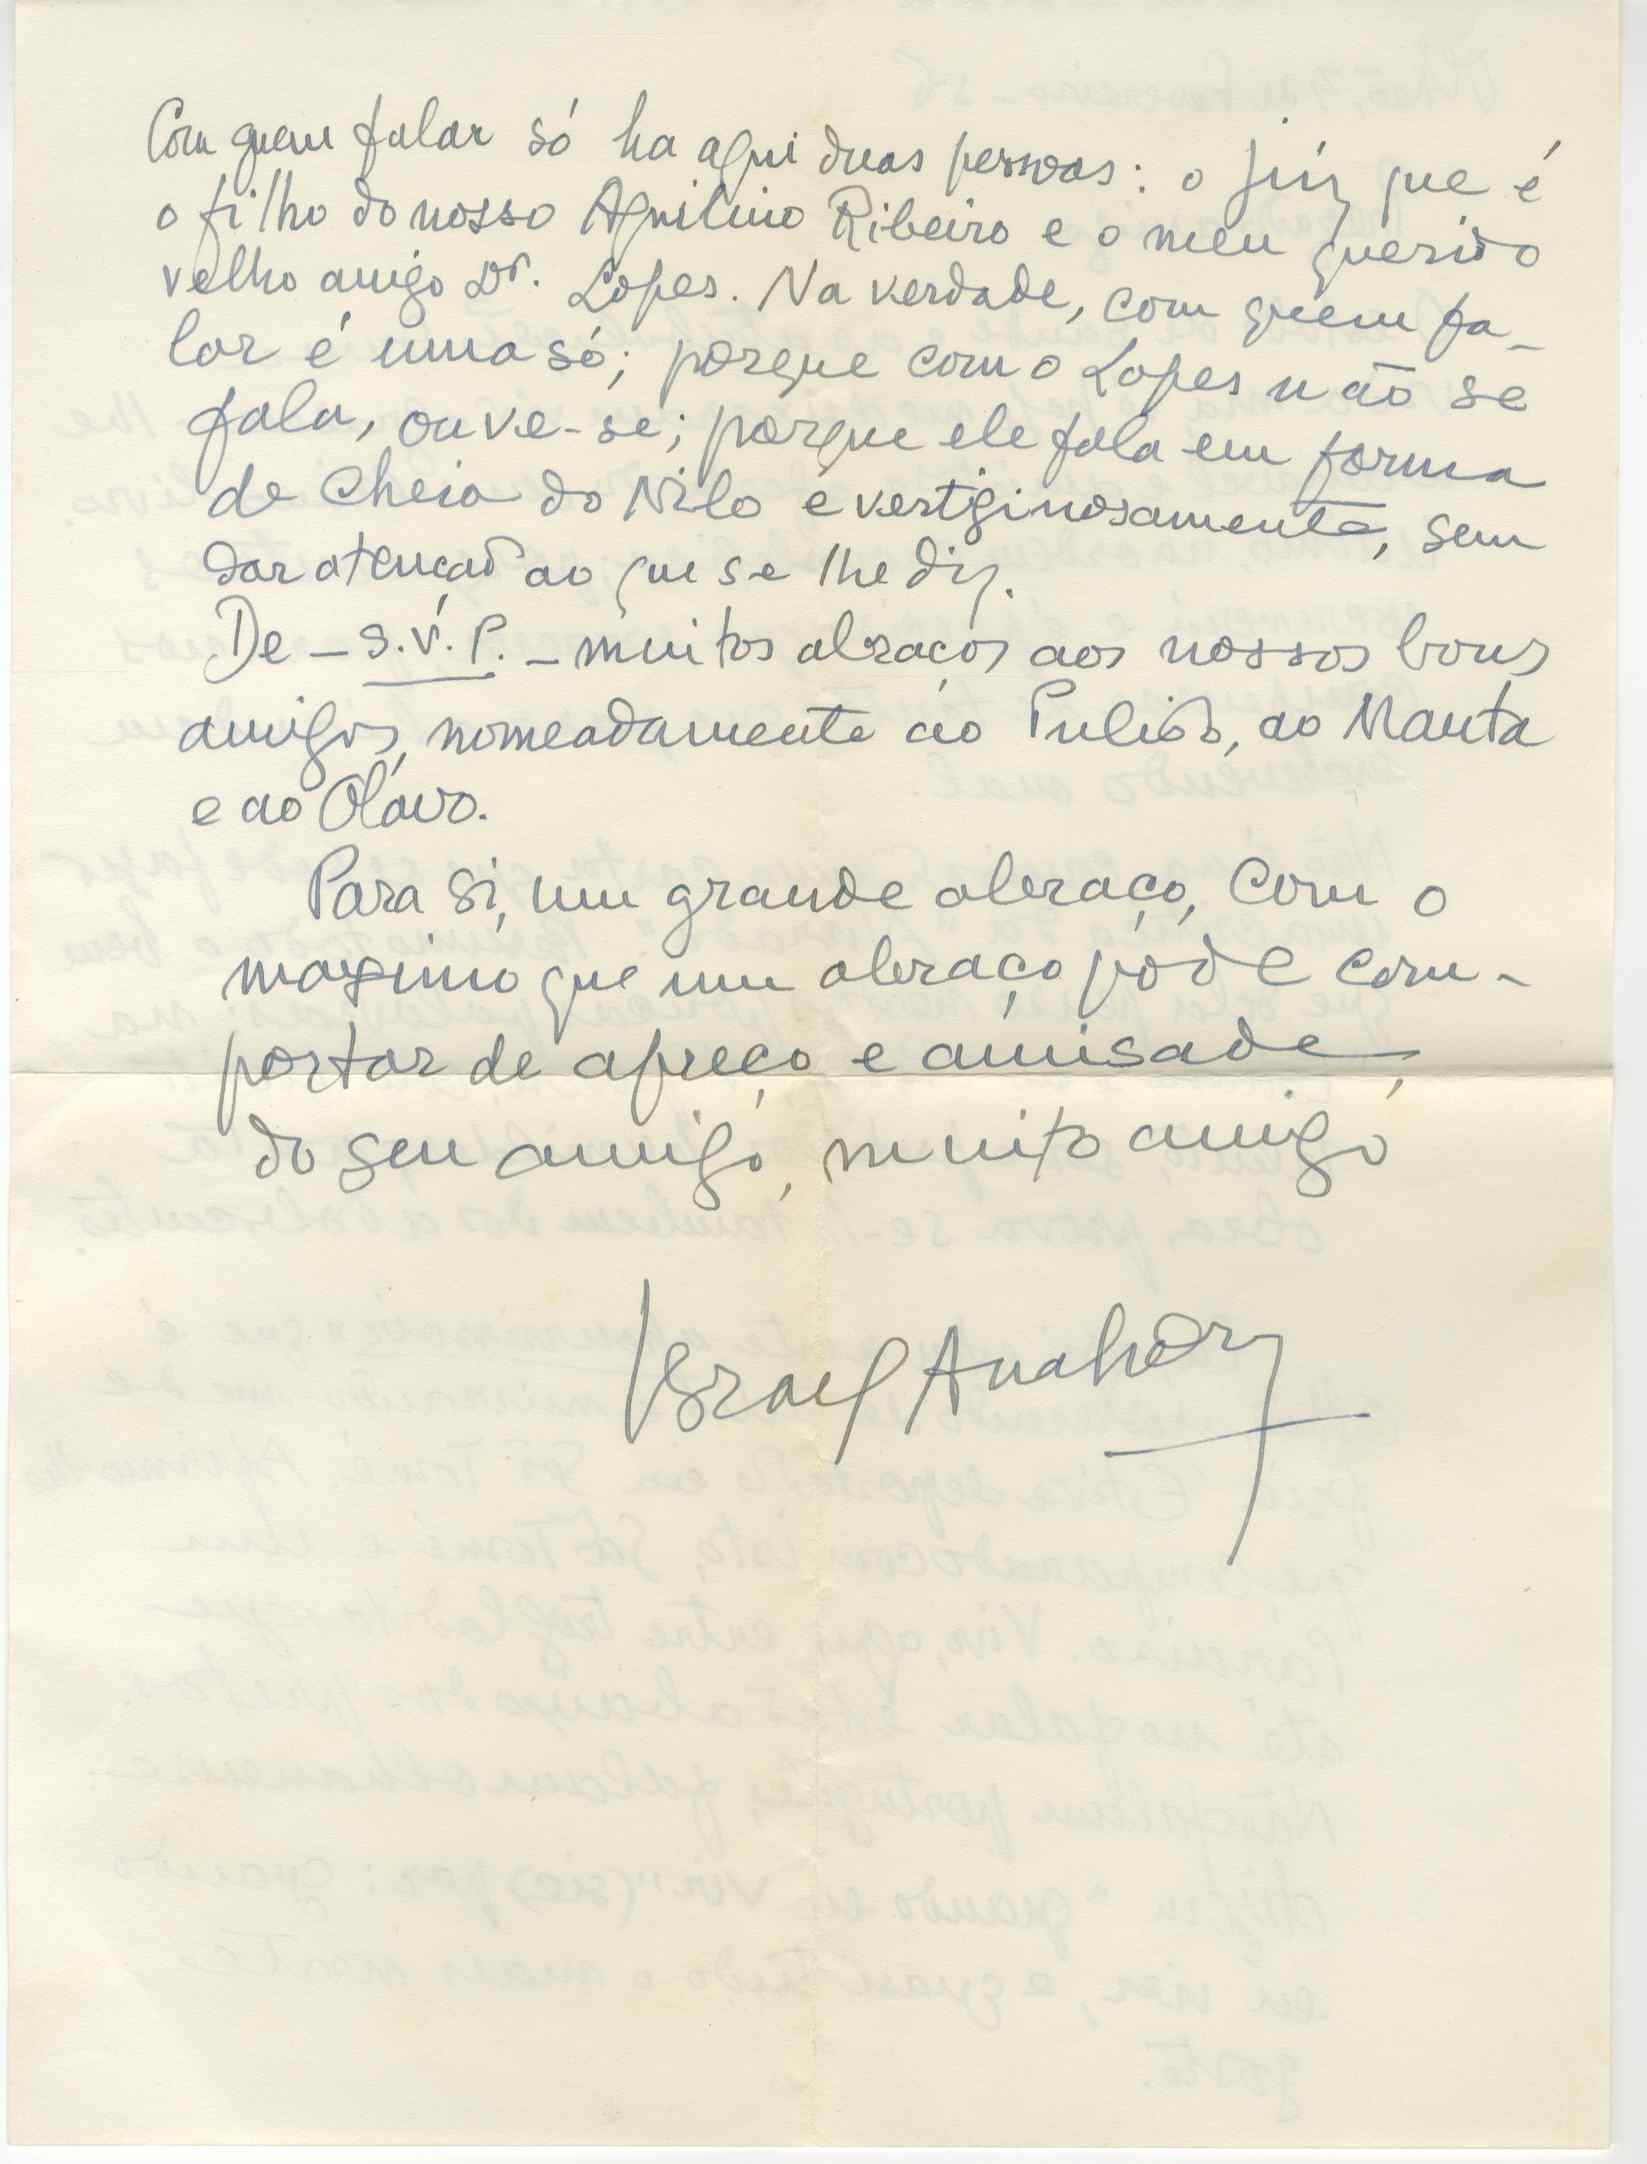 Com quem falar só ha aqui duas pessoas: o juiz que é
o filho do nosso Aquilino Ribeiro e o meu querido
velho amigo Dr. Lopes. Na verdade, com quem fa-
lar é uma só; porque com o Lopes não se
fala, ouve-se; porque ele fala em forma
de cheia do Nilo e vertiginosamente, sem
dar atenção ao que se lhe diz.
De – S.V.P. – muitos abraços aos nossos bons
amigos, nomeadamente ao Pulido, ao Manta
e ao Olavo.
Para si, um grande abraço, com o
maximo que um abraço póde com-
portar de apreço e amisade,
do seu amigo, muito amigo
Israel Anahory